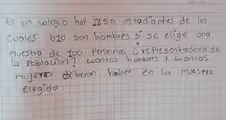 En un colegio hay 1250 estudiantes de los
cuales 610 son hombres si se elige una
muestra de 100 personas (representadora de
la poblacion) cuantos hombres y cuantas
mujeres deberan haber en la muestra
elegida